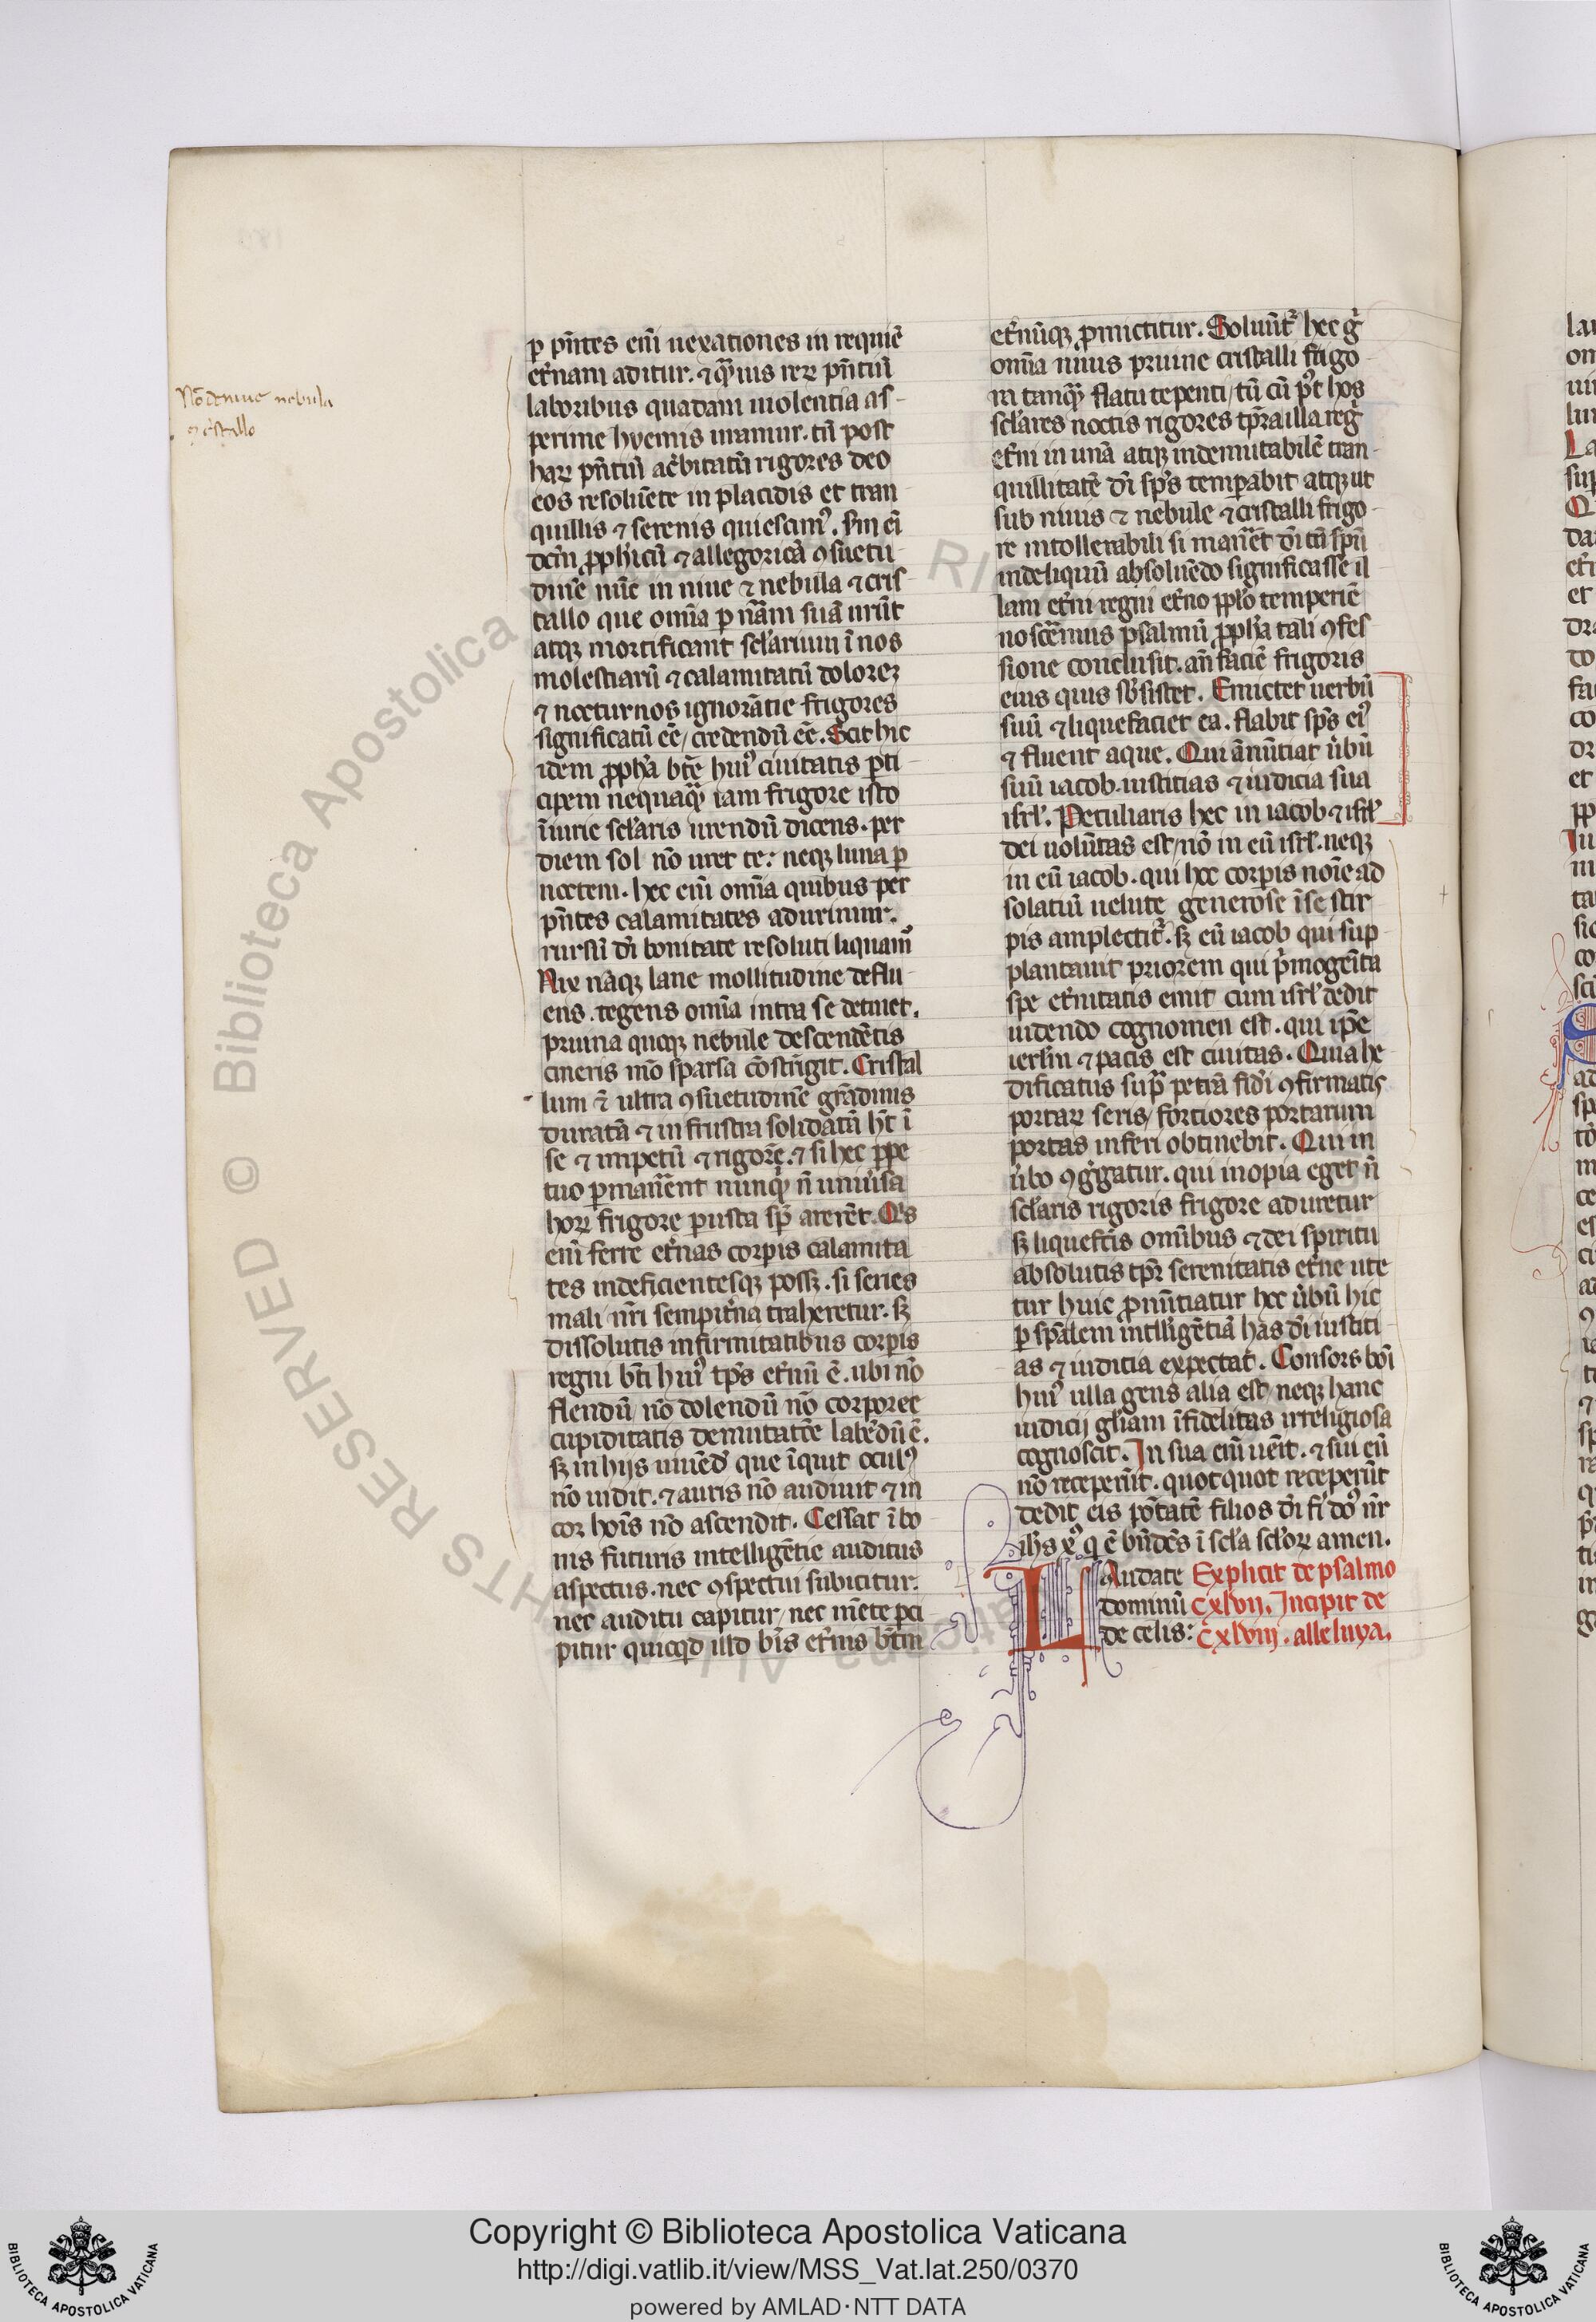 Nõ de niue nebula
⁊ c͛stallo
ꝑ p̃ntes eñi uexationes in requiẽ
et͛nam aditur. ⁊ qͣuis reꝝ p̃ntiũ
laboribus quadam uiolentia as-
perime hyemis uramur. tũ post
haꝝ p̃ntiũ ac͛bitatũ rigores deo
eos resoluẽte in placidis et tran
quillis ⁊ serenis quiescim᷒. Sm̃ eñ
dem ꝓph̃icũ ⁊ allegoricã ꝯsuetu-
dinẽ nũc in niue ⁊ nebula ⁊ cris-
tallo que om̃ia ꝑ nãm suã urũt
atqꝫ mortificant scl̃arium ĩ nos
molestiarũ ⁊ calamitatũ dolorez
⁊ nocturnos ignorãtie frigores
significatũ eẽ, credendũ eẽ. Scit hic
idem ꝓph̃a bt̃e hui᷒ ciuitatis ꝑti-
cipem nequaqͣ iam frigore isto
ĩiurie scl̃aris urendũ dicens. per
diem sol nõ uret te: neqꝫ luna ꝑ
noctem. hec eñi om̃ia quibus per
p̃ntes calamitates adurimur.
rursũ dĩ bonitate resoluti liquam᷒
Nix nãqꝫ lane mollitudine deflu-
ens. tegens om̃ia intra se detinet.
pruina quoqꝫ nebule descendẽtis
cineris mõ sparsa cõstrĩgit. Cristal
lum ẽ ultra ꝯsuetudinẽ grãdinis
duratã ⁊ in frustra solidatã ht̃ ĩ
se ⁊ impetũ ⁊ rigorẽ. ⁊ si hec ꝑpe
tuo ꝑmanẽnt nunqͣ ñ uniu͛sa
hoꝝ frigore ꝑusta sꝑ arerẽt. Qͥs
eñi ferre et͛nas corꝑis calamita
tes indeficientesqꝫ possꝫ. si series
mali nr̃i sempit͛na traheretur. sꝫ
dissolutis infirmitatibus corꝑis
regni bt̃i hui᷒ tp̃s et͛nũ ẽ. ubi nõ
flendũ, nõ dolendũ nõ corporee
cupiditatis demutatẽ labẽdũ ẽ.
sꝫ in hijs uiuẽd͛ que ĩquit ocul᷒
nõ uidit. ⁊ auris nõ audiuit ⁊ in
cor hoĩs nõ ascendit. Cessat ĩ bo
nis futuris intelligẽtie auditus
aspectus. nec ꝯspectui subicitur.
nec auditu capitur, nec mẽte ꝑci
pitur quicqͥd illd bĩs et͛nis bt̃m
et͛nũqꝫ ꝓmictitur. Soluũt͛ hec gͥ
om̃ia niuis pruine cristalli frigo-
ra tanqͣ flatu tepenti, tũ cũ p᷒t hos
scl̃ares noctis rigores tꝑra illa reg͛
et͛ni in unã atqꝫ indemutabilẽ tran-
quillitatẽ dĩ sp̃s temꝑabit atqꝫ ut
sub niuis ⁊ nebule ⁊ cristalli frigo-
re intollerabili si manẽt dĩ cũ sp̃ũ
in deliquiũ absoluẽdo significasse il
lam et͛ni regni et͛no ꝑpl̃o temperiẽ
noscẽmus psalmũ ꝓph̃a tali ꝯfes
sione conclusit. añ faciẽ frigoris
eius quis sb͛sistet. Emictet uerbũ
suũ ⁊ liquefaciet ea. flabit sp̃s ei᷒
⁊ fluent aque. Qui ãnũtiat ũbũ
suũ iacob. iustitias ⁊ iudicia sua
isrl̃. Peculiaris hec in iacob ⁊ isrl̃
dei uolũtas est, nõ in eũ isrl̃. neqꝫ
in eũ iacob. qui hec corꝑis noĩe ad
solatiũ uelute generose ĩ se stir
pis amplectit͛. sꝫ eũ iacob qui sup
plantauit priorem qui pͥmogẽita
spe et͛nitatis emit cum isrl̃ dedit
uidendo cognomen est. qui ip̃e
ierl̃m ⁊ pacis est ciuitas. Quia he-
dificatus supͣ petrã fid̃i ꝯfirmatis
portaꝝ seris, fortiores portarum
portas inferi obtinebit. Qui in
ũbo ꝯg͛gatur. qui inopia eget ñ
scl̃aris rigoris frigore aduretur
sꝫ liquefc̃is omĩbus ⁊ dei spiritu
absolutis tꝑr serenitatis et͛ne ute
tur huic ꝓnũtiatur hec ũbũ hic
ꝑ sp̃alem intllĩgẽtiã has dĩ iustiti-
as ⁊ iuditia expectat. Consors boĩ
hui᷒ ulla gens alia est, neqꝫ hanc
iudicij gl̃iam ĩfidelitas irreligiosa
cognoscit. In sua eñi uẽit. ⁊ sui eũ
nõ receperũt. quotquot receperũt
dedit eis po͛tatẽ filios dĩ fi͛ do᷒ nr̃
ih̃s x᷒ q ẽ bñdc̃s ĩ scl̃a scl̃oꝝ amen.
LAudate Explicit de psalmo
dominũ cxlvii. Incipit de
de celis: cxlviii. alleluya.
Biblioteca Apostolica Vaticana ALL RIGHTS RESERVED ©
Copyright © Biblioteca Apostolica Vaticana
http://digi.vatlib.it/view/MSS_Vat.lat.250/0370
powered by AMLAD·NTT DATA
BIBLIOTECA APOSTOLICA VATICANA
BIBLIOTECA APOSTOLICA VATICANA